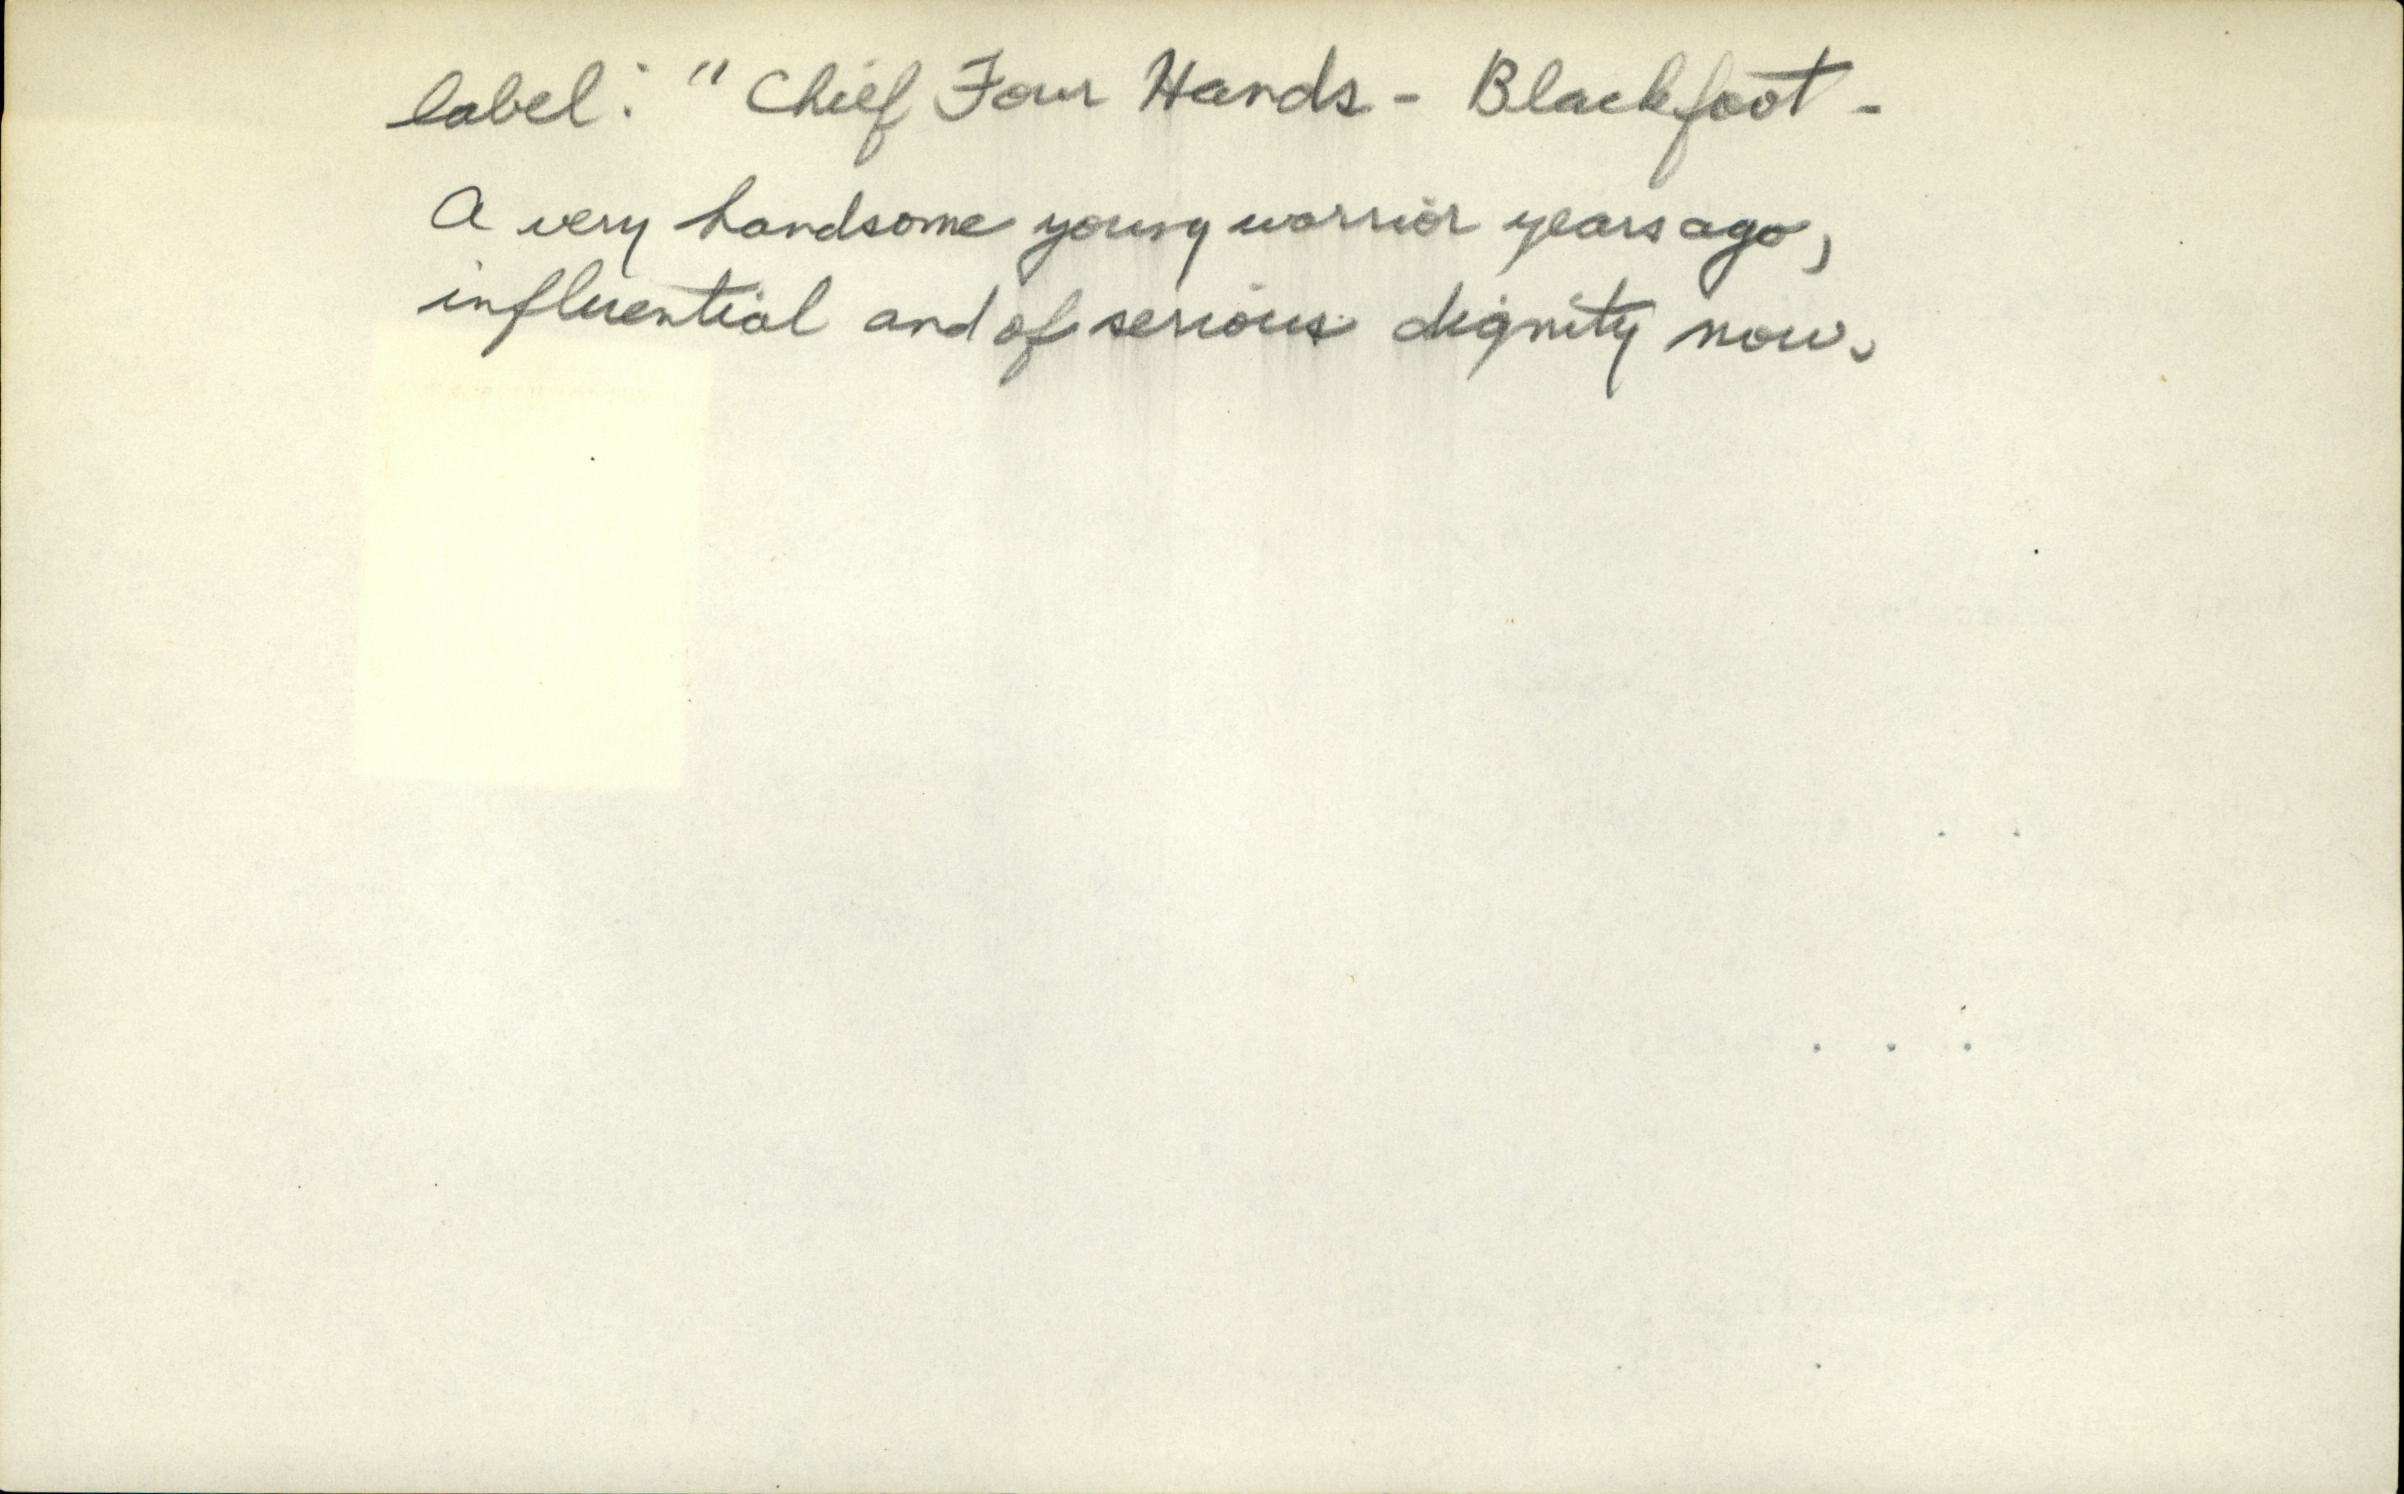 label: "Chief Four Hands - Blackfoot -
A very handsome young warrior years ago,
influential and of serious dignity now.